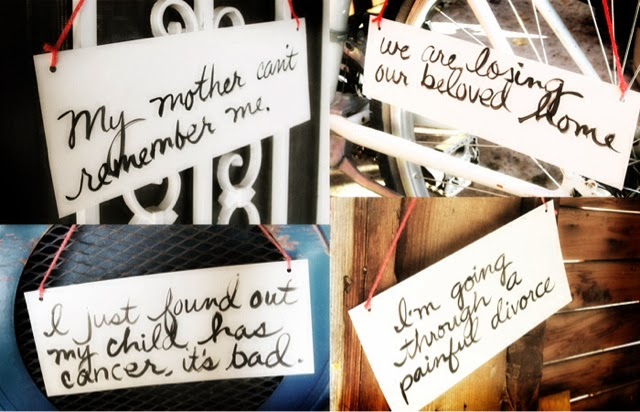 My mother can't
remember me.
we are losing
our beloved home
I just found out
my child has
cancer, it's bad.
I'm going
through a
painful divorce